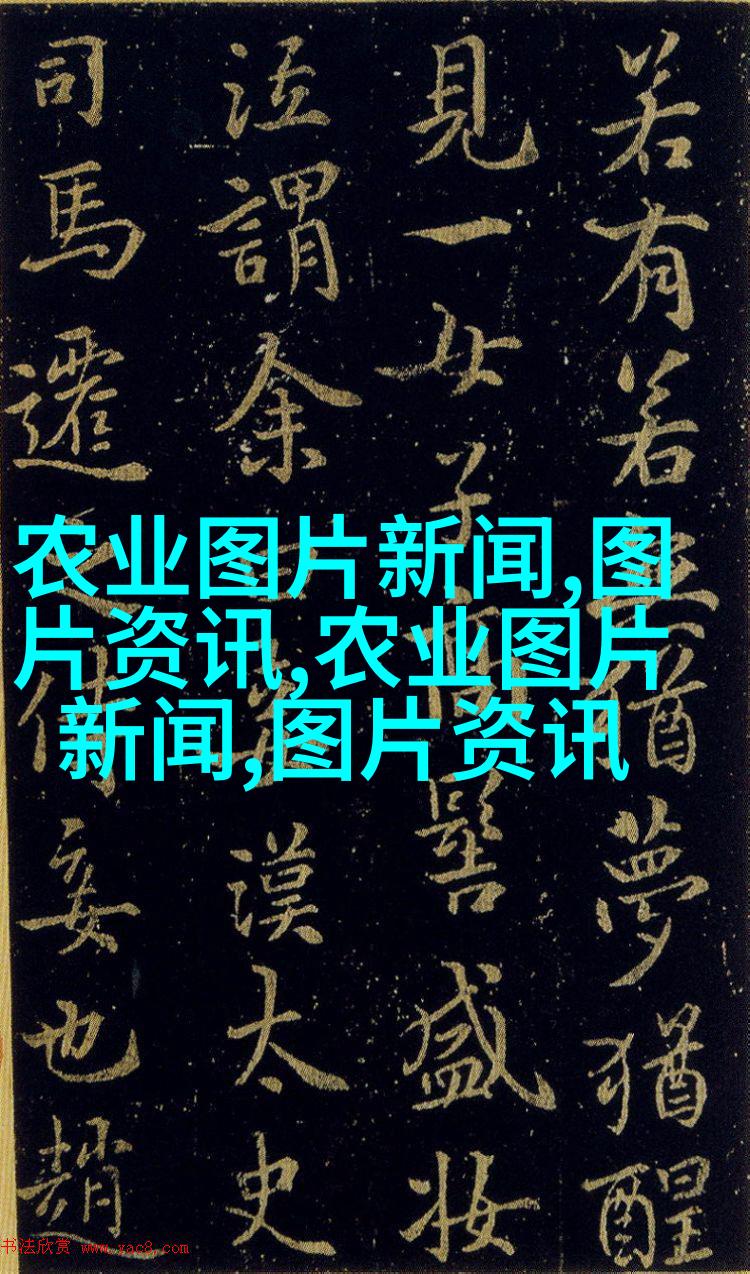 若有若無猶夢猶醒
見一女子高髻盛妝
泣謂余曰妾漢太史
司馬遷之侍妾也趙
农业图片新闻,图
片资讯,农业图片
新闻,图片资讯
书法欣赏 www.yac8.com